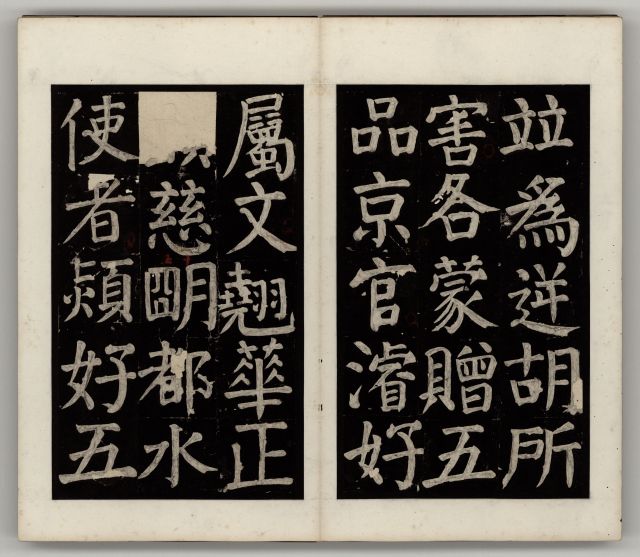 竝爲逆胡所
害各蒙贈五
品京官濬好
屬文翹華正
慈朙都水
使者熲好五